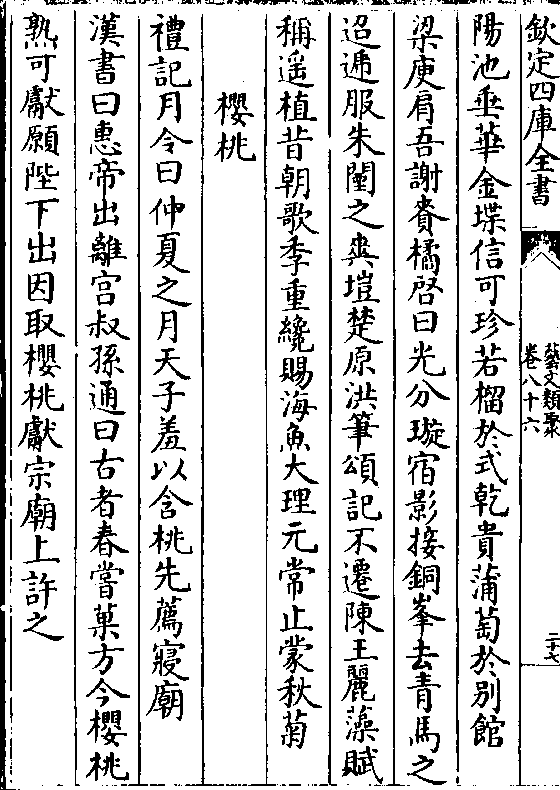 欽定四庫全書
藝文類聚
卷八十六
二十七
陽池垂華金堞信可珍若榴於式乾貴蒲萄於別館
梁庾肩吾謝賚橘啓曰光分璇宿影接銅峯去青馬之
迢遞服朱閽之爽塏楚原洪筆頌記不遷陳王麗藻賦
稱遥植昔朝歌季重纔賜海魚大理元常止蒙秋菊
櫻桃
禮記月令曰仲夏之月天子羞以含桃先薦寢廟
漢書曰惠帝出離宮叔孫通曰古者春嘗菓方今櫻桃
熟可獻願陛下出因取櫻桃獻宗廟上許之